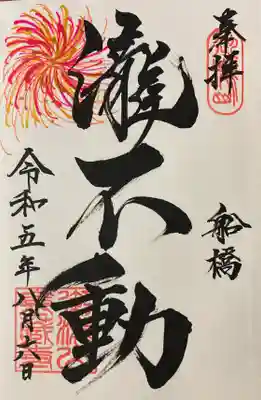 奉拝
船橋
瀧不動
令和五年八月六日